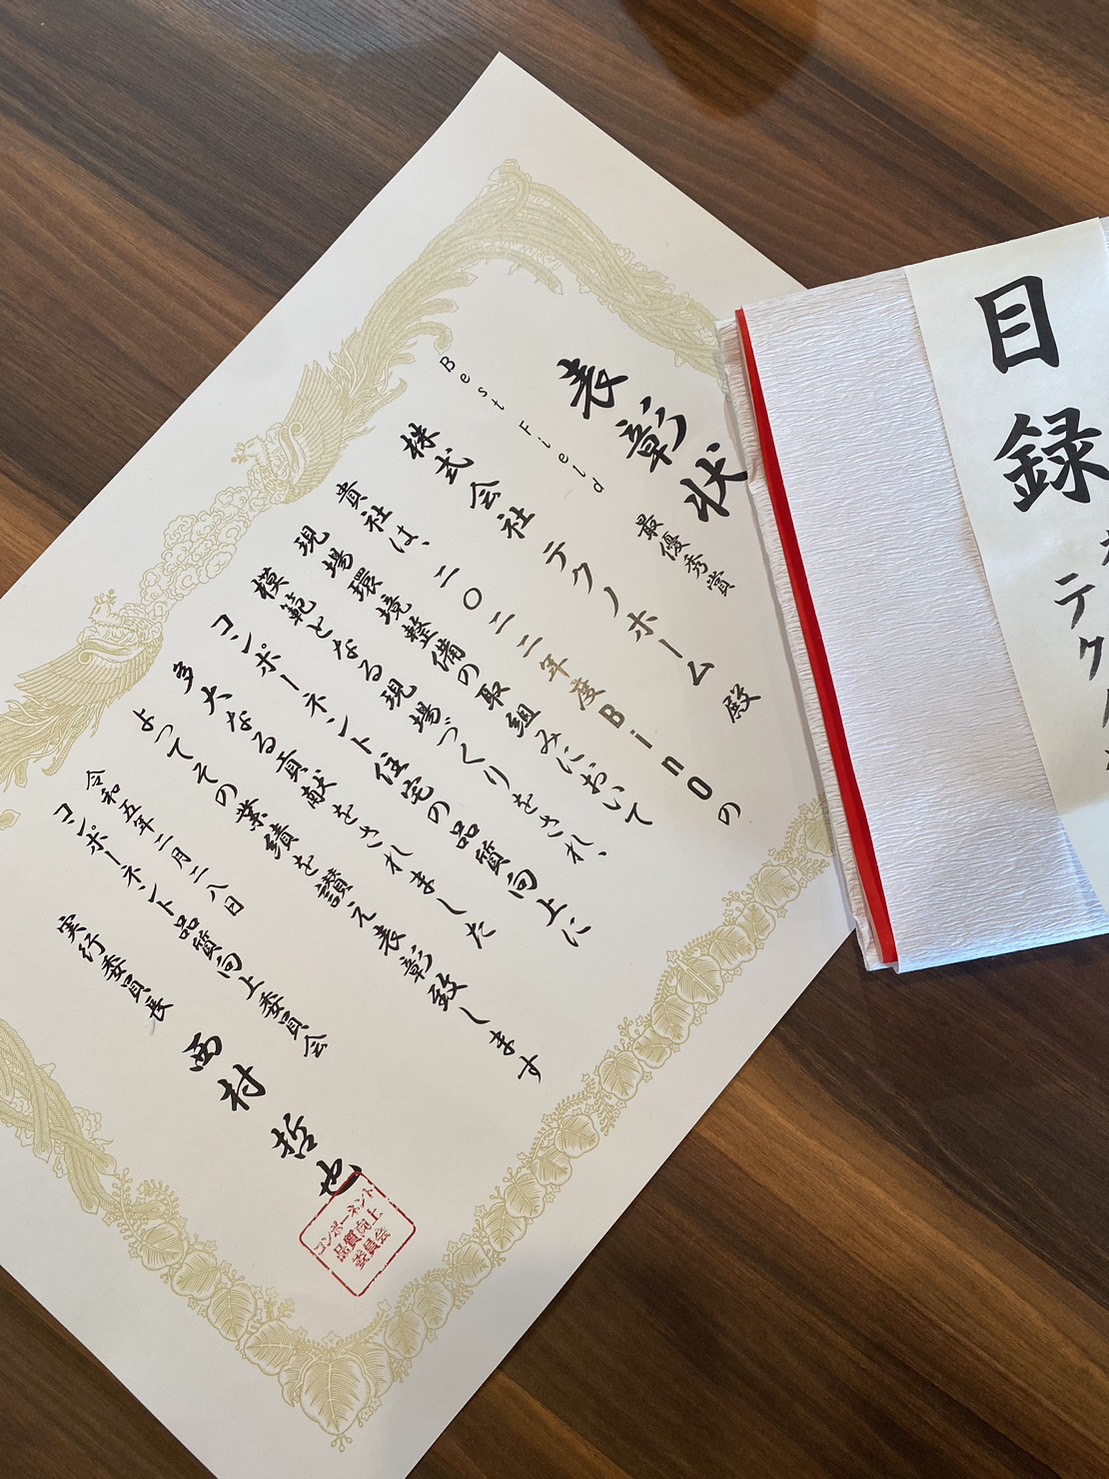 表彰状
最優秀賞
Best Field
株式会社 テクノホーム 殿
貴社は、二〇二二年度Binoの
現場環境整備の取組みにおいて
模範となる現場づくりをされ、
コンポーネント住宅の品質向上に
多大なる貢献をされました
よってその業績を讃え表彰致します
令和五年二月二八日
コンポーネント品質向上委員会
実行委員長 西村哲也
コンポーネント
品質向上
委員会
目録
テクノ